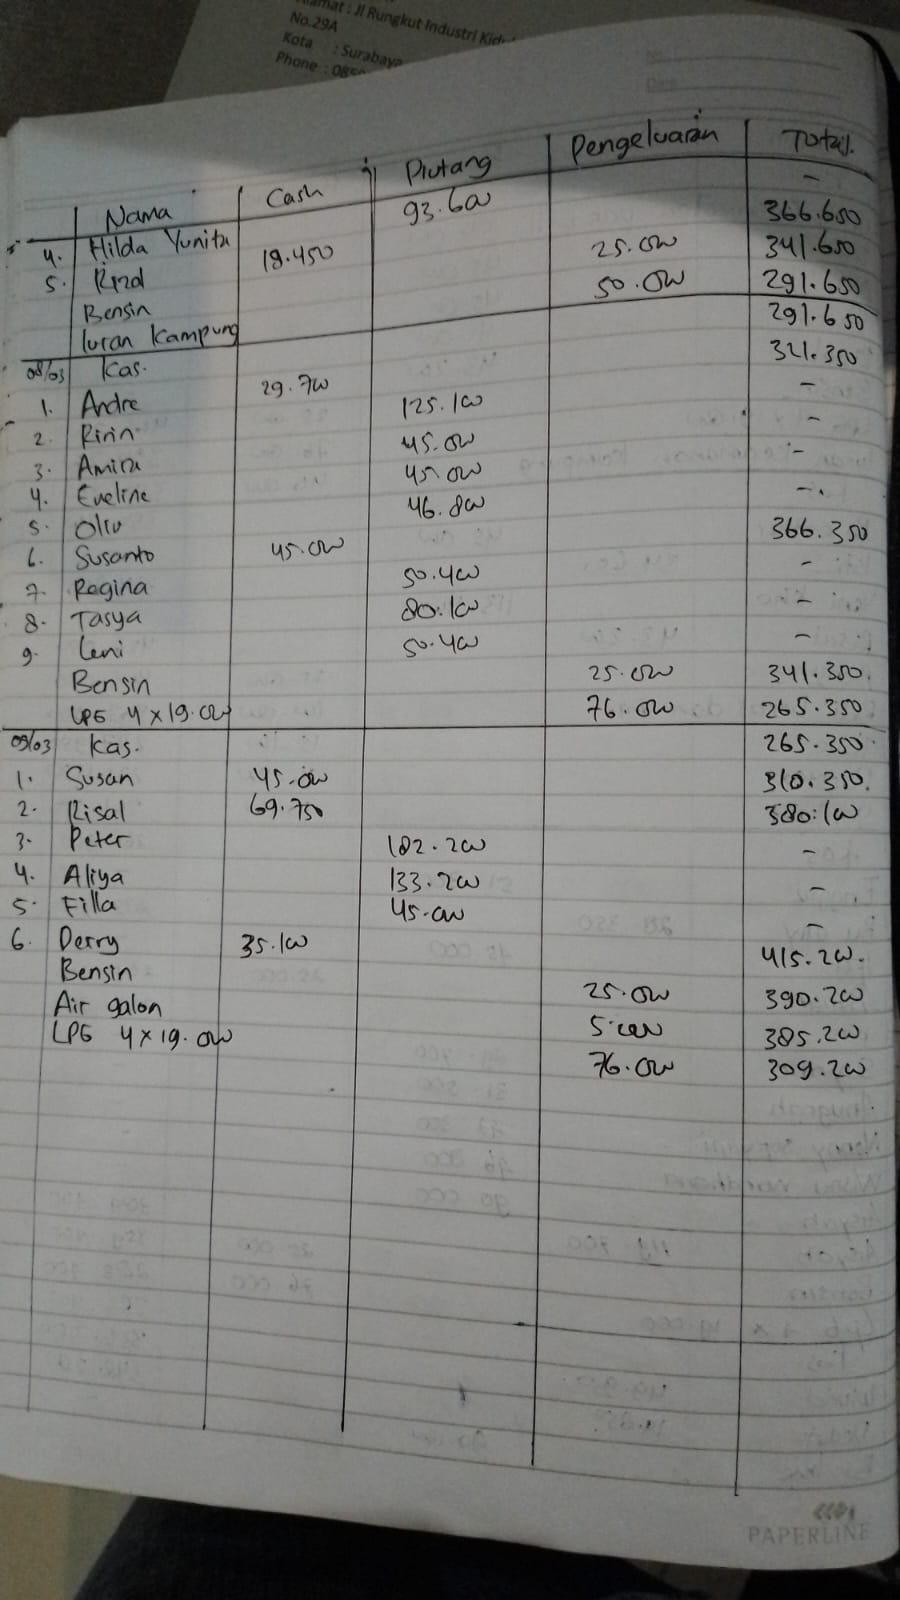 Alamat : Jl Rungkut Industri Kid
No.29A
Kota : Surabaya
Phone : 085
Nama Cash Piutang Pengeluaran Total.
4. Hilda Yunita 93.600 -
5. Rizal 18.450 366.650
Bensin 25.000 341.650
Iuran Kampung 50.000 291.650
08/03 Kas. 291.650
1. Andre 29.700 321.350
2. Ririn 125.100 -
3. Amira 45.000 -
4. Eveline 45.000 -
5. Oliv 46.800 -
6. Susanto 45.000 366.350
7. Regina 50.400 -
8. Tasya 80.100 -
9. Leni 50.400 -
Bensin 25.000 341.350.
LPG 4 x 19.000 76.000 265.350
09/03 Kas. 265.350
1. Susan 45.000 310.350.
2. Risal 69.750 380.100
3. Peter 182.200 -
4. Aliya 133.200 -
5. Filla 45.000 -
6. Derry 35.100 415.200.
Bensin 25.000 390.200
Air galon 5.000 385.200
LPG 4 x 19.000 76.000 309.200
PAPERLINE